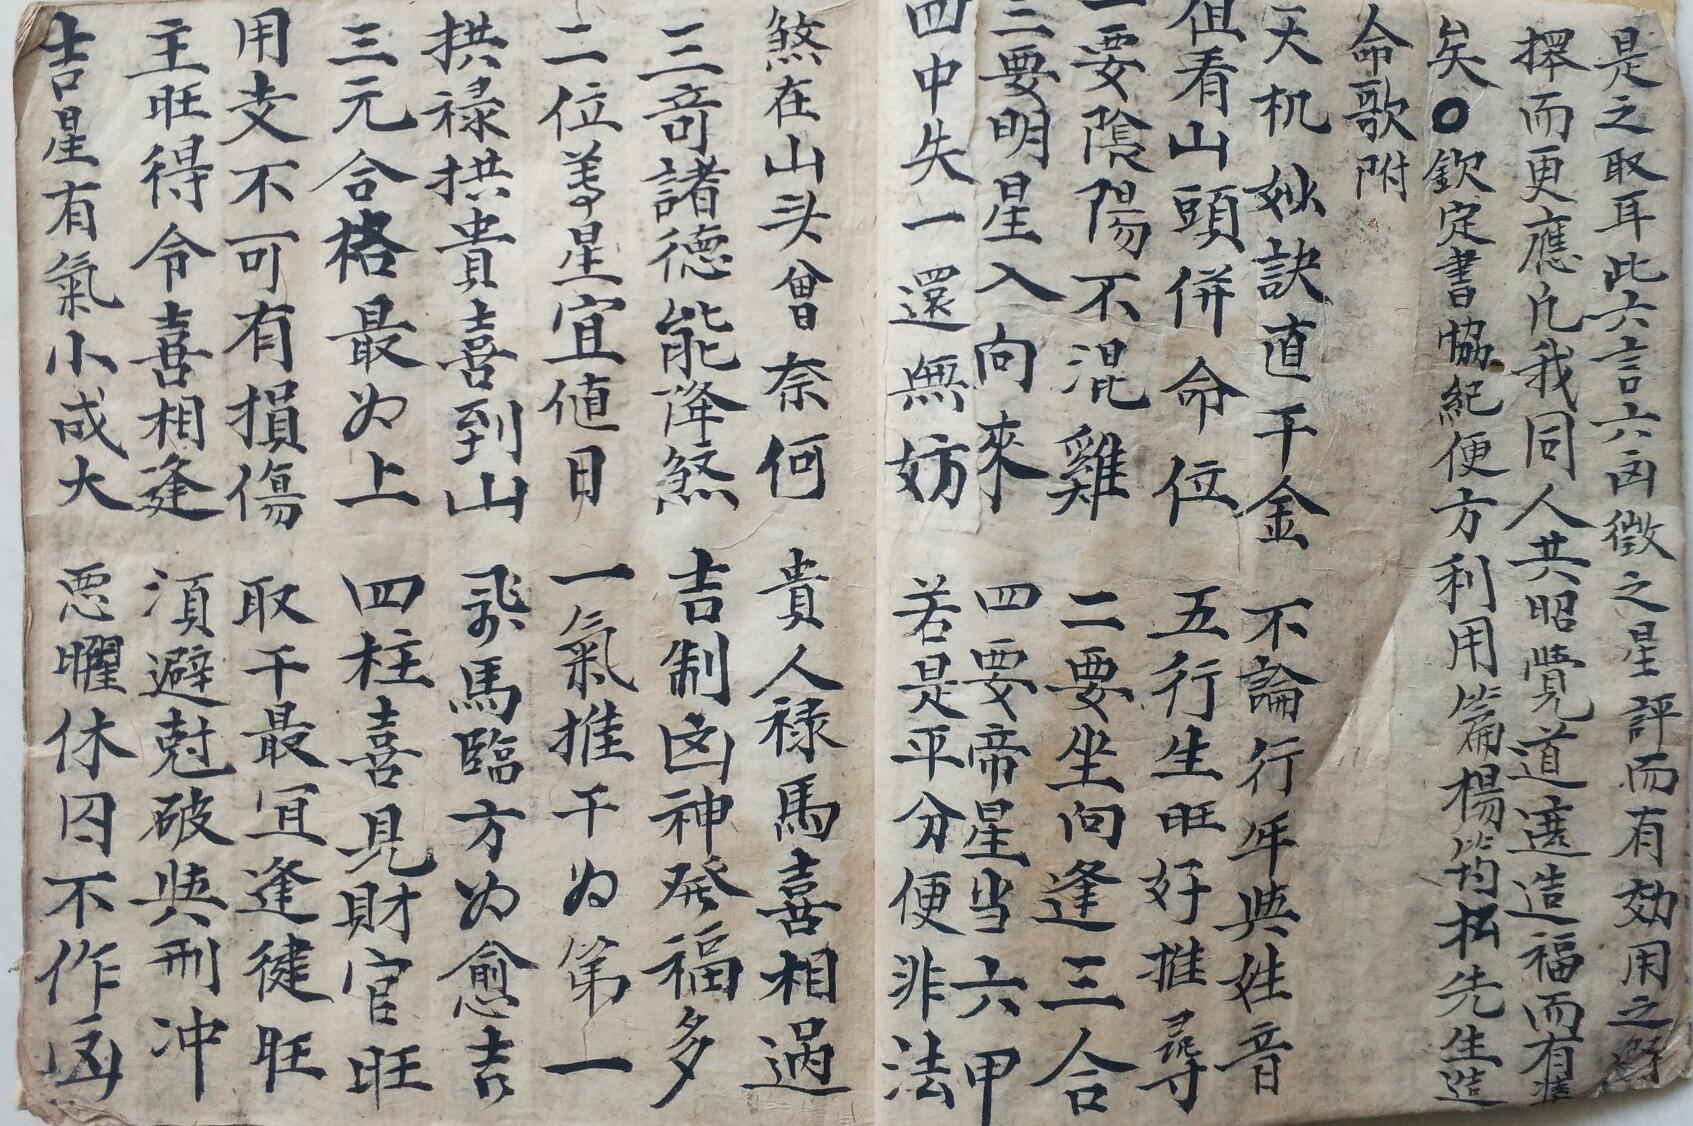 是之取耳此六言六凶徵之星評而有効用之
擇而更應凢我同人共昭覺道遠造福而有
矣〇欽定書協紀便方利用篇楊筠松先生造
命歌附
天机妙訣直千金 不論行年與姓音
但看山頭併命位 五行生旺好推尋
一要陰陽不混雞 二要坐向逢三合
三要明星入向來 四要帝星当六甲
四中失一還無妨 若是平分便非法
煞在山头曾奈何 貴人禄馬喜相過
三奇諸德能降煞 吉制凶神發福多
二位尊星宜值日 一氣推干为第一
拱禄拱貴喜到山 飛馬臨方为愈吉
三元合格最为上 四柱喜見財官旺
用支不可有損傷 取干最宜逢健旺
主旺得令喜相逢 須避尅破與刑冲
吉星有氣小成大 恶曜休囚不作凶